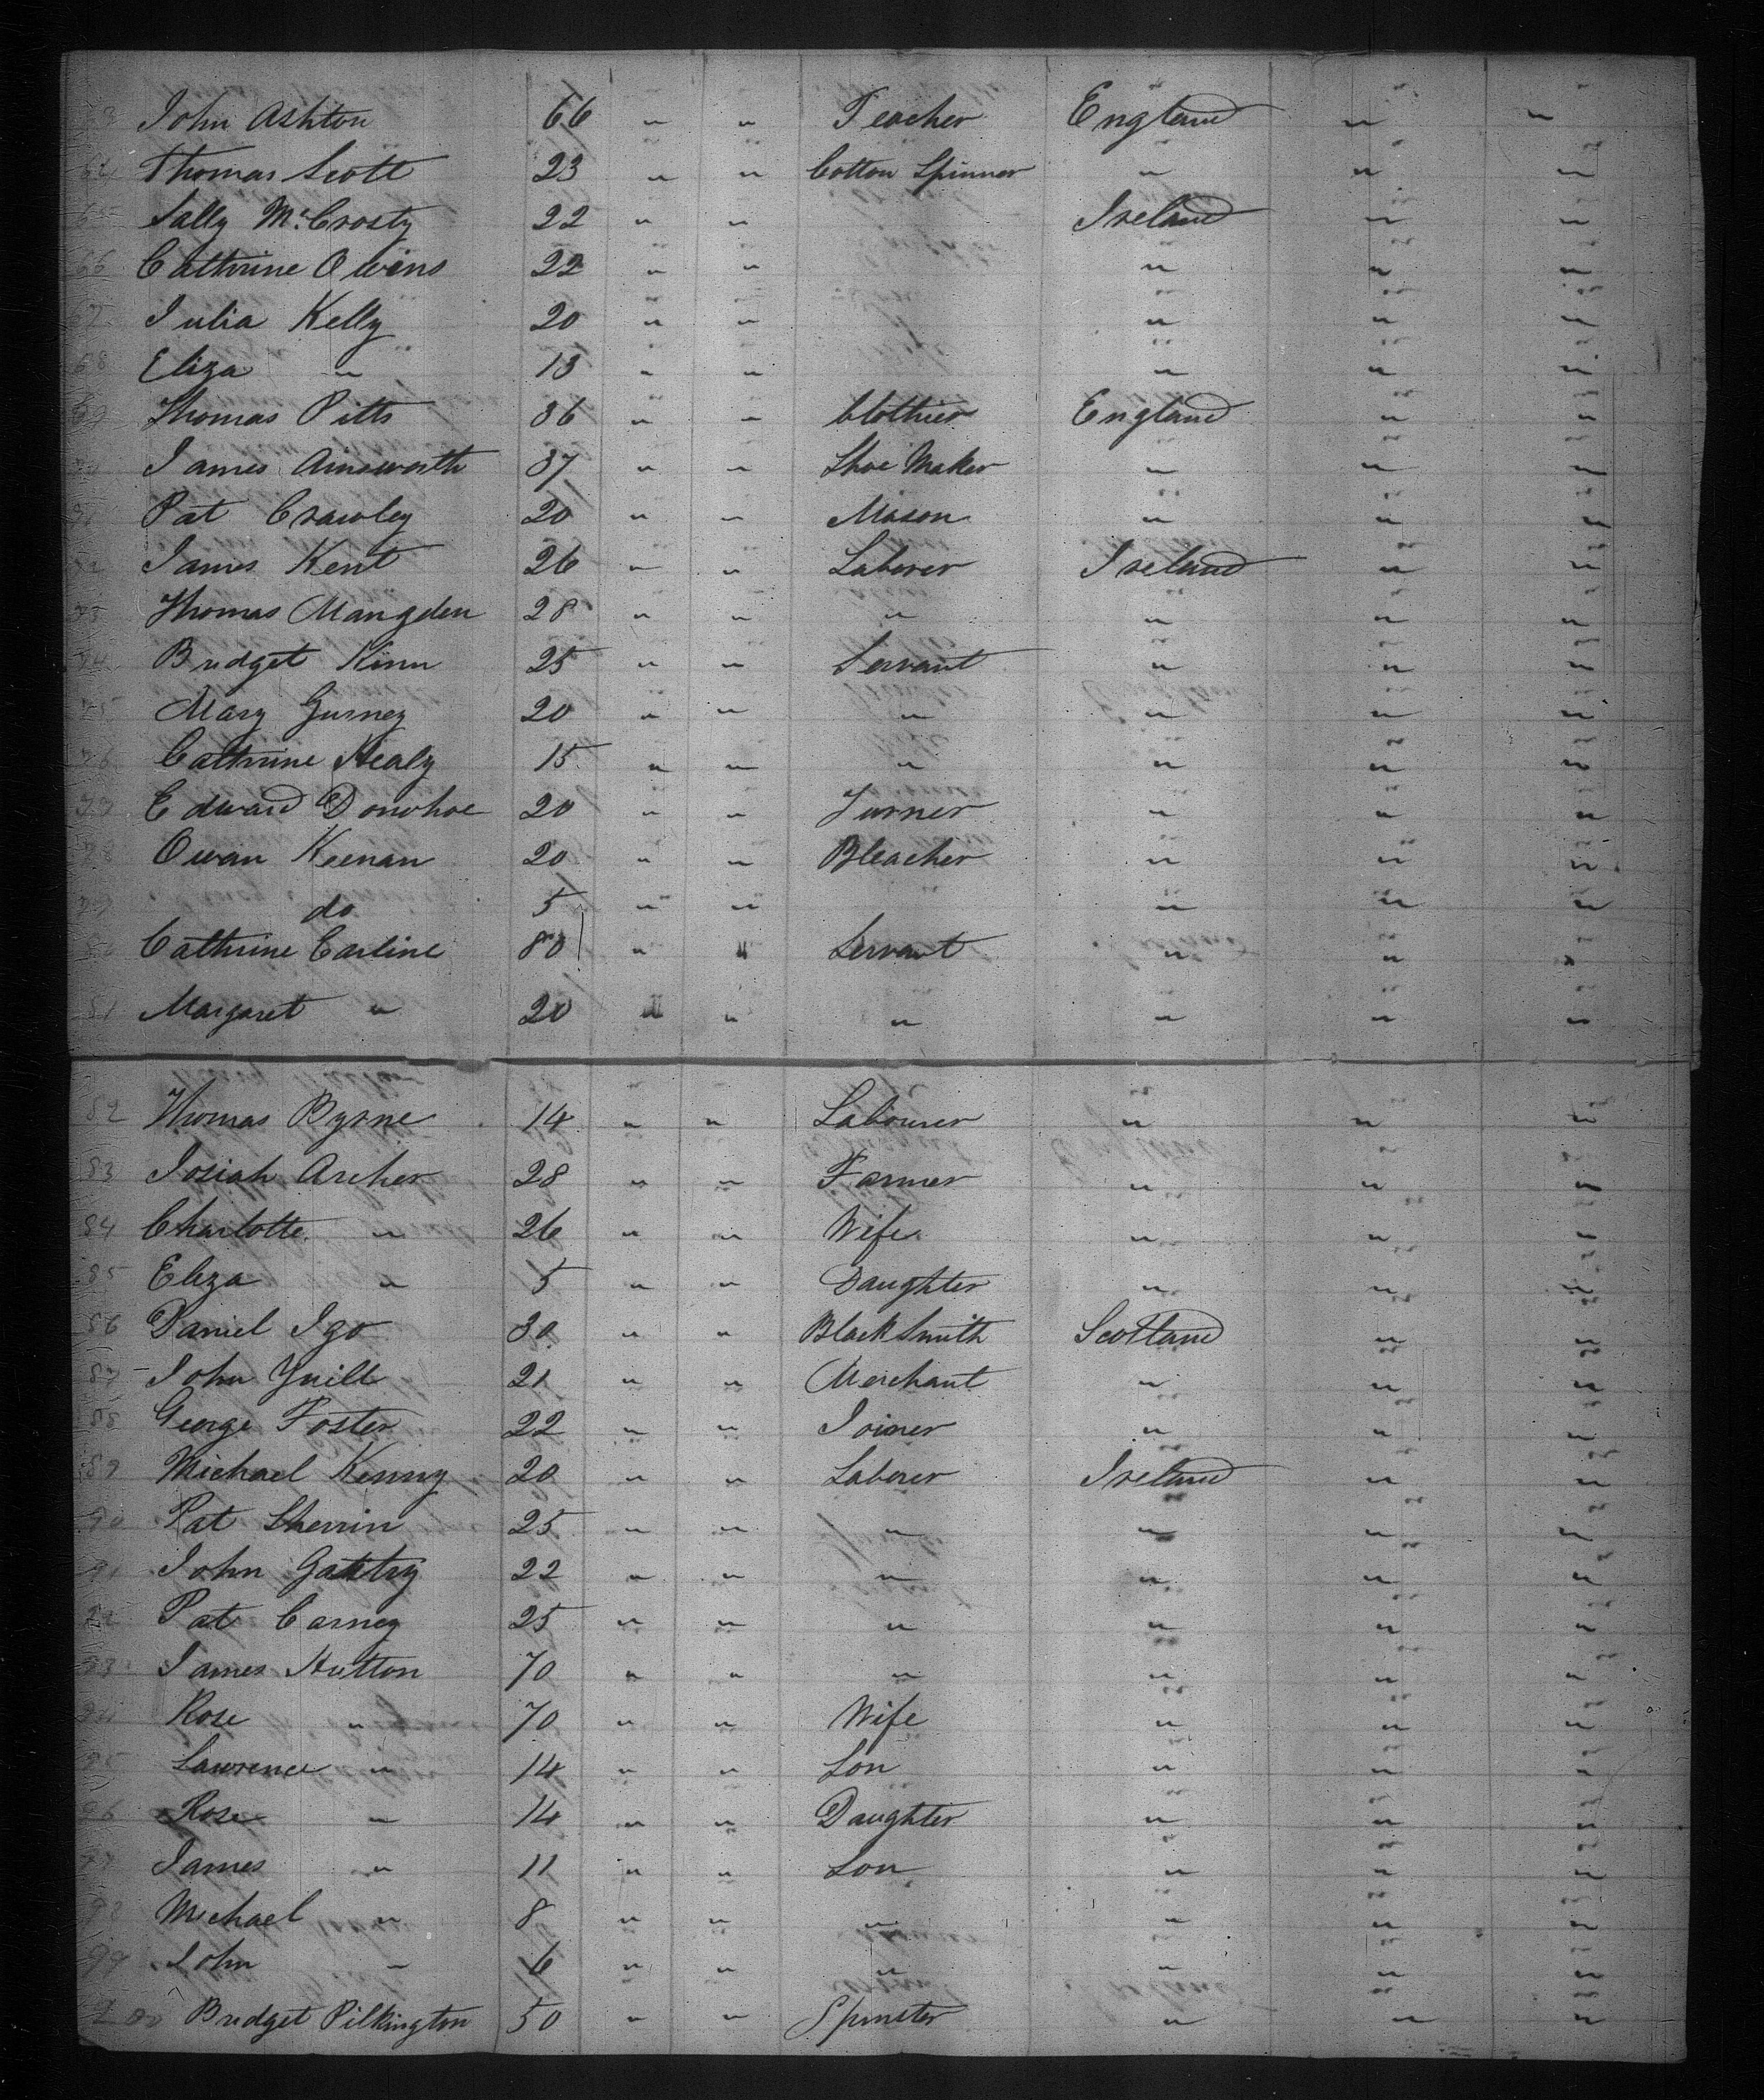 John Ashton 66 " " Teacher England " "
64 Thomas Scott 23 " " Cotton Spinner " " "
65 Sally McCrosty 22 " " Ireland " "
66 Cathrine Owens 22 " " " " "
67 Julia Kelly 20 " " " " "
68 Eliza " 13 " " " " "
69 Thomas Pitts 36 " " Clothier England " "
James Ainsworth 37 " " Shoe Maker " " "
Pat Crawley 20 " " Mason " " "
James Kent 26 " " Laborer Ireland " "
73 Thomas Mangden 28 " " " " " "
74 Bridget Kinn 25 " " Servant " " "
75 Mary Gurney 20 " " " " " "
76 Cathrine Healy 15 " " " " " "
77 Edward Donohoe 20 " " Turner " " "
78 Owan Keenan 20 " " Bleacher " " "
79 do 5 " " " " "
80 Cathrine Carline 80 " " Servant " " "
81 Margaret " 20 " " " " " "
82 Thomas Byrne 14 " " Labourer " " "
83 Josiah Archer 28 " " Farmer " " "
84 Charlotte " 26 " " Wife " " "
85 Eliza " 5 " " Daughter " " "
86 Daniel Igo 30 " " BlackSmith Scotland " "
87 John Yuill 21 " " Merchant " " "
88 George Foster 22 " " Joiner " " "
89 Michael Kenny 20 " " Laborer Ireland " "
90 Pat Sherrin 25 " " " " " "
91 John 22 " " " " " "
92 Pat Carney 25 " " " " " "
93 James Hutton 70 " " " " " "
94 Rose " 70 " " Wife " " "
95 Lawrence " 14 " " Son " " "
96 Rose " 14 " " Daughter " " "
97 James " 11 " " Son " " "
98 Michael " 8 " " " " " "
99 John " 6 " " " " " "
Bridget Pilkington 50 " " Spinster " " "